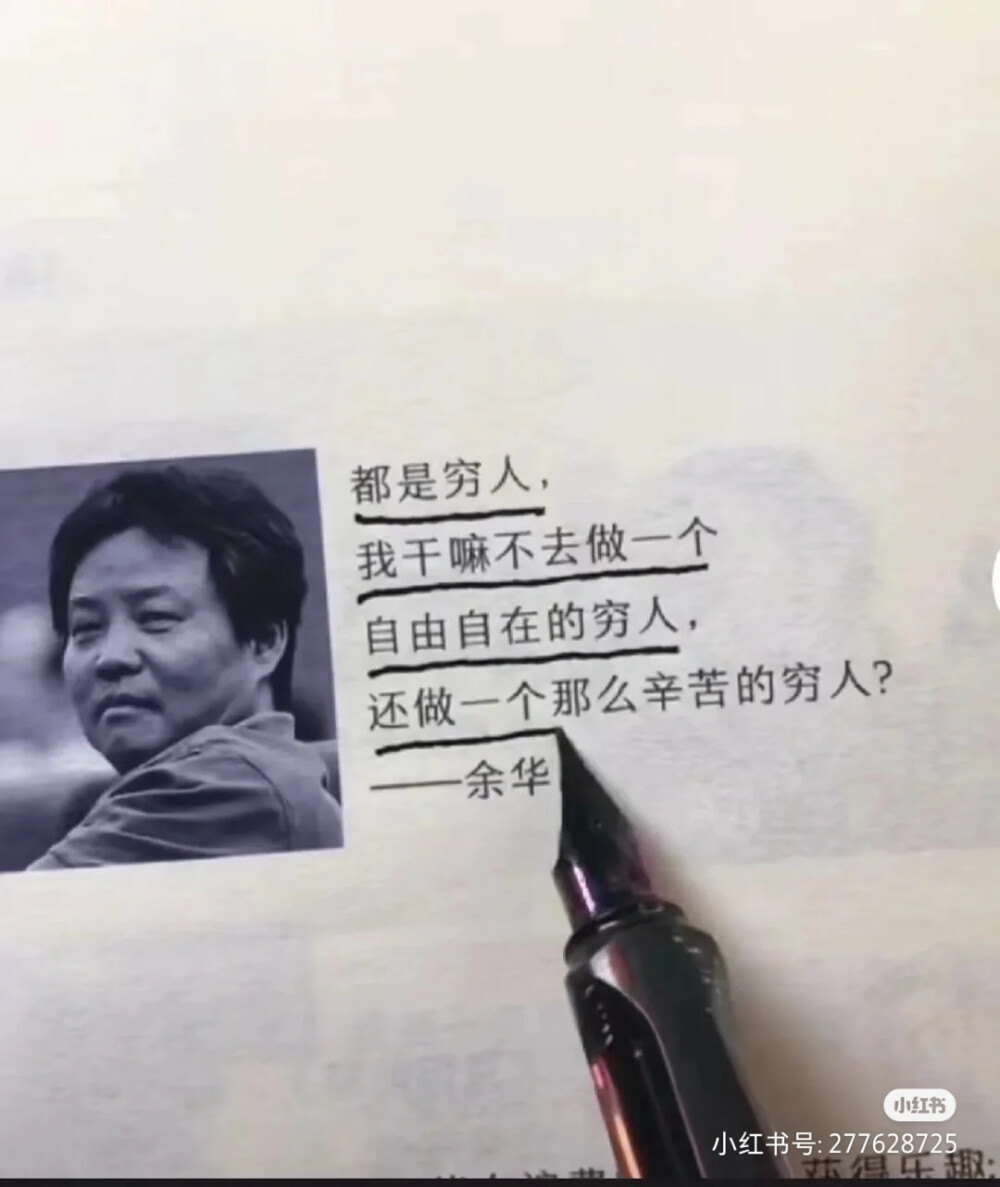 都是穷人，
我干嘛不去做一个
自由自在的穷人，
还做一个那么辛苦的穷人？
——余华
小红书
小红书号: 277628725
获得乐趣;